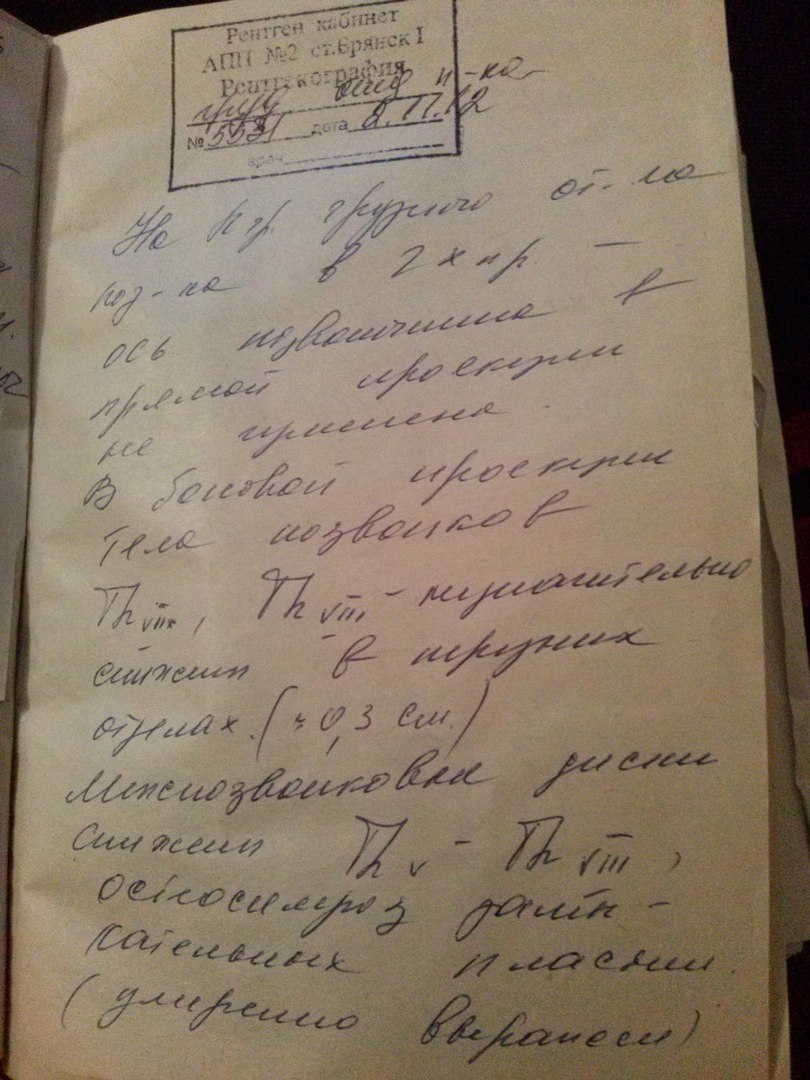 Рентген кабинет
АПП №2 ст.Брянск I
Рентгенография
груд отд п-ка
№ 5531 дата 8.11.12
врач
На Rгр. грудного от-ла
поз-ка в 2х пр. —
ось позвоночника в
прямой проекции
не изменена.
В боковой проекции
тела позвонков
Th VII, Th VIII - незначительно
снижены в передних
отделах. (≈0,3 см.)
Межпозвонковые диски
снижены Th V - Th VIII,
остеосклероз замы-
кательных пластин.
(умеренно выражен)